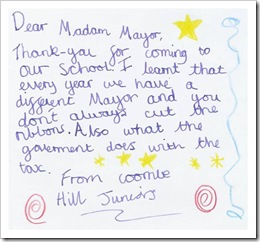 Dear Madam Mayor,
Thank-you for coming to
our school. I learnt that
every year we have a
different Mayor and you
don't always cut the
ribbons. Also what the
goverment does with the
tax.
From coombe
Hill Juniors